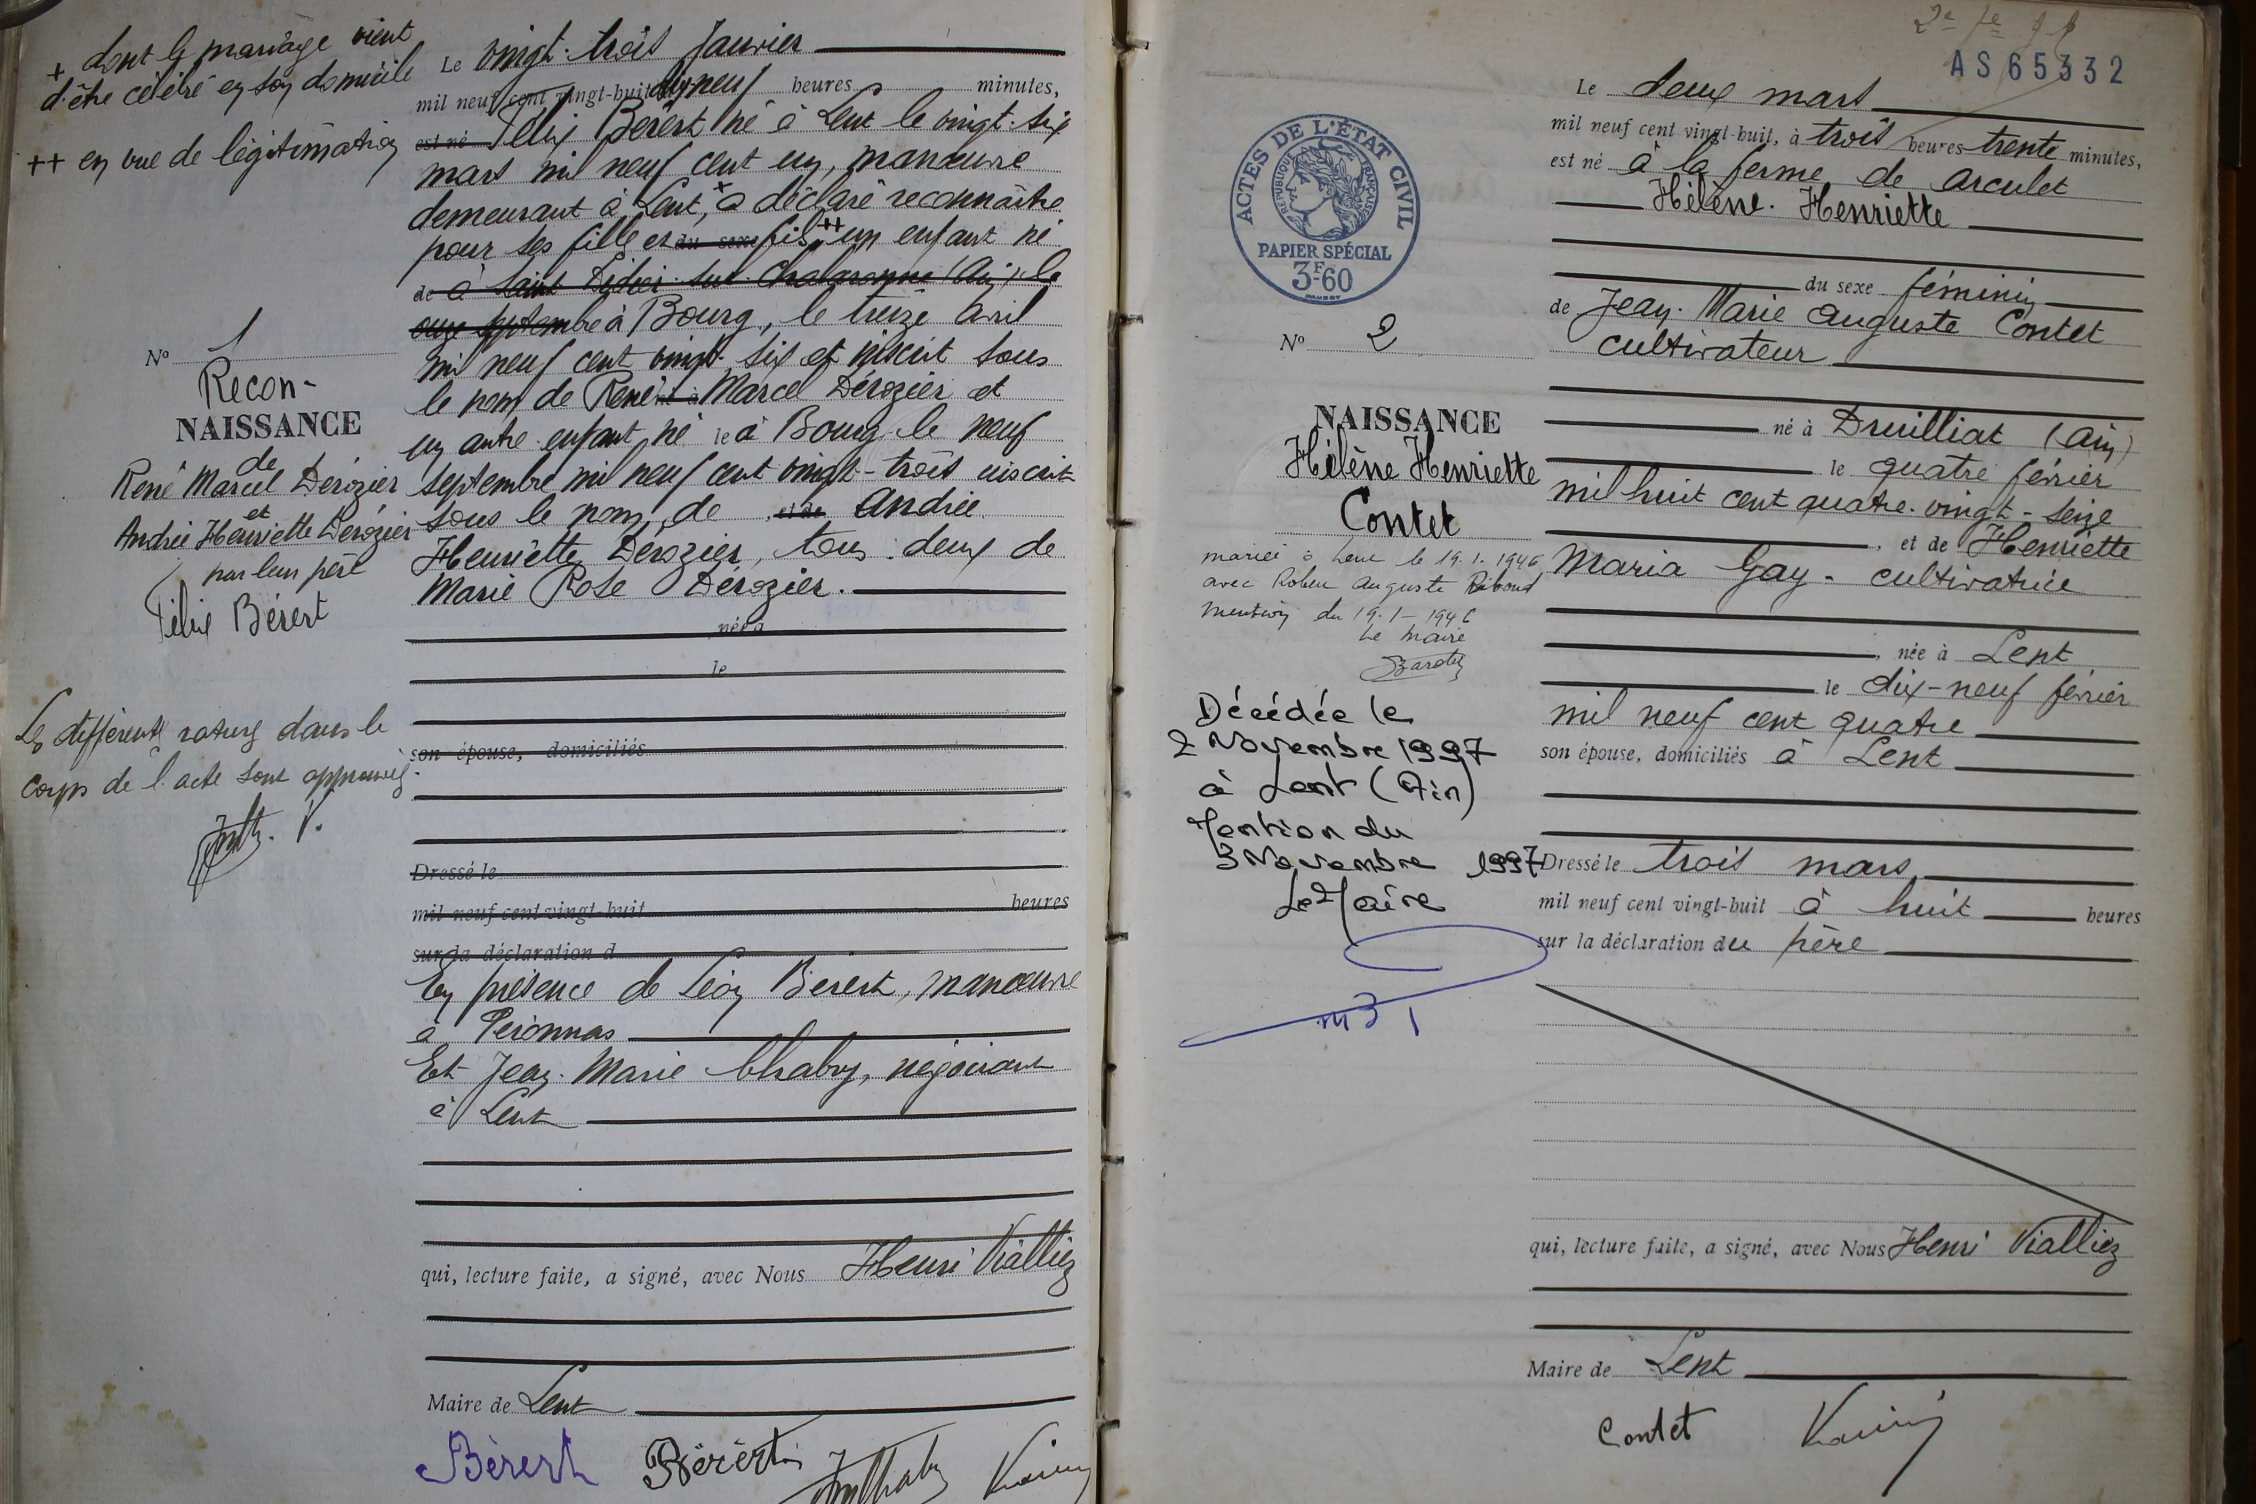 + dont le mariage vient
d'être célébré en son domicile
++ en vue de légitimation
Nº 1
Recon-
NAISSANCE
de
René Marcel Dérozier
et
Andrée Henriette Dérozier
par leur père
Félix Bérert
Les différents ratures dans le
corps de l'acte sont approuvés.
Le vingt-trois Janvier
mil neuf cent vingt-huit, dix neuf heures minutes,
est né Félix Bérert né à Lent le vingt-six
mars mil neuf cent un, manœuvre
demeurant à Lent,+ a déclaré reconnaître
pour ses fille et du sexe fils,++ un enfant né
de à Saint Didier sur Chalaronne (Ain), le
onze septembre à Bourg, le treize avril
mil neuf cent vingt-six et inscrit sous
le nom de René né à Marcel Dérozier et
un autre enfant né le à Bourg le neuf
septembre mil neuf cent vingt-trois inscrit
sous le nom de , et de Andrée
Henriette Dérozier, tous deux de
Marie Rose Dérozier.
née à
le
son épouse, domiciliés
Dressé le
mil neuf cent vingt-huit heures
sur la déclaration d
En présence de Léon Bérert, manœuvre
à Péronnas
Et Jean-Marie Chabry, négociant
à Lent
qui, lecture faite, a signé, avec Nous Henri Vialliez
Maire de Lent
Bérert Bérert
AS 65332
ACTES DE L'ÉTAT CIVIL
RÉPUBLIQUE FRANÇAISE
PAPIER SPÉCIAL
3F-60
Nº 2
NAISSANCE
Hélène Henriette
Contet
mariée à Lent le 19.1.1946
avec Robert Auguste Riboud
mention du 19-1-1946
Le maire
Décédée le
2 Novembre 1997
à Lent (Ain)
Mention du
3 Novembre 1997
Le Maire
Le deux mars
mil neuf cent vingt-huit, à trois heures trente minutes,
est né à la ferme de Arculet
Hélène. Henriette
du sexe féminin
de Jean-Marie Auguste Contet
cultivateur
né à Druilliat (Ain)
le quatre février
mil huit cent quatre-vingt-seize
, et de Henriette
Maria Gay - cultivatrice
, née à Lent
le dix-neuf février
mil neuf cent quatre
son épouse, domiciliés à Lent
Dressé le trois mars
mil neuf cent vingt-huit à huit heures
sur la déclaration du père
qui, lecture faite, a signé, avec Nous Henri Vialliez
Maire de Lent
Contet